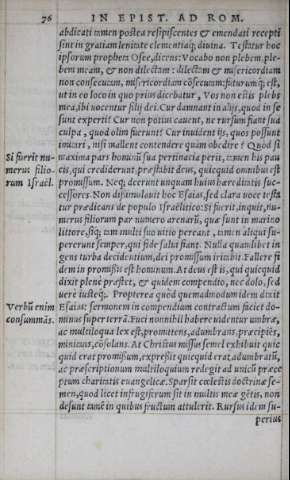 76 IN EPIST. AD ROM.
abdicati tamen postea resipiscentes & emendati recepti
sint in gratiam lenitate clementiaq; diuina. Testatur hoc
ipsorum propheta Osee, dicens: Vocabo non plebem, ple-
bem meam, & non dilectam: dilectam & misericordiam
non consecutam, misericordiam cōsecutam: futurum q; est,
ut in eo loco in quo prim dicebatur, Vos non estis plebs
mea, ibi uocentur filij dei. Cur damnant in alijs, quod in se
sunt experti? Cur non potius cauent, ne rursum fiant sua
culpa, quod olim fuerunt? Cur inuident ijs, quos possunt
imitari, nisi mallent contendere quàm obedire? Quod si
Si fuerit nu-
merus filio-
rum Israël.
maxima pars hominū sua pertinacia perit, tamen his pau
cis, qui crediderunt præstabit deus, quicquid omnibus est
promissum. Neq; deerunt unquam huius hæreditatis suc-
cessores. Non dissimulauit hoc Esaias, sed clara uoce testa
tur prædicans de populo Israëlitico: Si fuerit, inquit, nu-
merus filiorum par numero arenarū, quæ sunt in marino
littore, siq; tam multi suo uitio pereant, tamen aliqui su-
pererunt semper, qui fide salui fiant. Nulla quamlibet in
gens turba decidentium, dei promissum irritabit. Fallere fi
dem in promissis est hominum. At deus est is, qui quicquid
dixit plene præstet, & quidem compendio, nec dolo, sed
uere iusteq;. Propterea quòd quemadmodum idem dixit
Verbū enim
consummās.
Esaias: sermonem in compendium contractum faciet do-
minus super terrā. Fuci nonnihil habere uidentur umbræ,
ac multiloqua lex est, promittens, adumbrans, præcipiēs,
minitans, cōsolans. At Christus missus semel exhibuit quic
quid erat promissum, expressit quicquid erat adumbratū,
ac præscriptionum multiloquium redegit ad unicū præce
ptum charitatis euangelicæ. Sparsit cœlestis doctrinæ se-
men, quod licet infrugiferum sit in multis meæ gētis, non
desunt tamē in quibus fructum attulerit. Rursus idem su-
perius